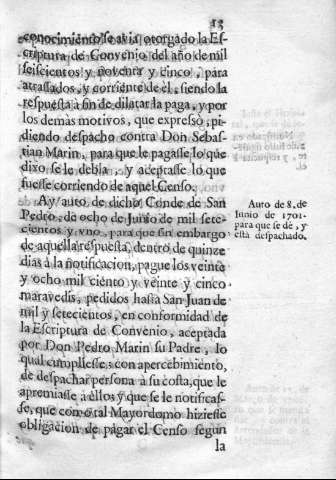 13
conocimiento se avia otorgado la Es-
criptura de Convenio del año de mil
seiscientos y noventa y cinco, para
atrassados, y corriente de el, siendo la
respuesta à fin de dilatar la paga, y por
los demàs motivos, que expresò, pi-
diendo despacho contra Don Sebas-
tian Marin, para que le pagasse lo que
dixo se le debia, y aceptasse lo que
fuesse corriendo de aquel Censo.
Ay auto de dicho Conde de San
Pedro, de ocho de Junio de mil sete-
cientos y vno, para que sin embargo
de aquella respuesta, dentro de quinze
dias à la notificacion, pague los veinte
y ocho mil ciento y veinte y cinco
maravedis, pedidos hasta San Juan de
mil y setecientos, en conformidad de
la Escriptura de Convenio, aceptada
por Don Pedro Marin su Padre, lo
qual cumpliesse; con apercebimiento,
de despachar persona à su costa, que le
apremiasse à ellos, y que se le notificas-
se, que como tal Mayordomo hiziesse
obligacion de pagar el Censo segun
la
Auto de 8. de
Junio de 1701.
para que se dè, y
està despachado.